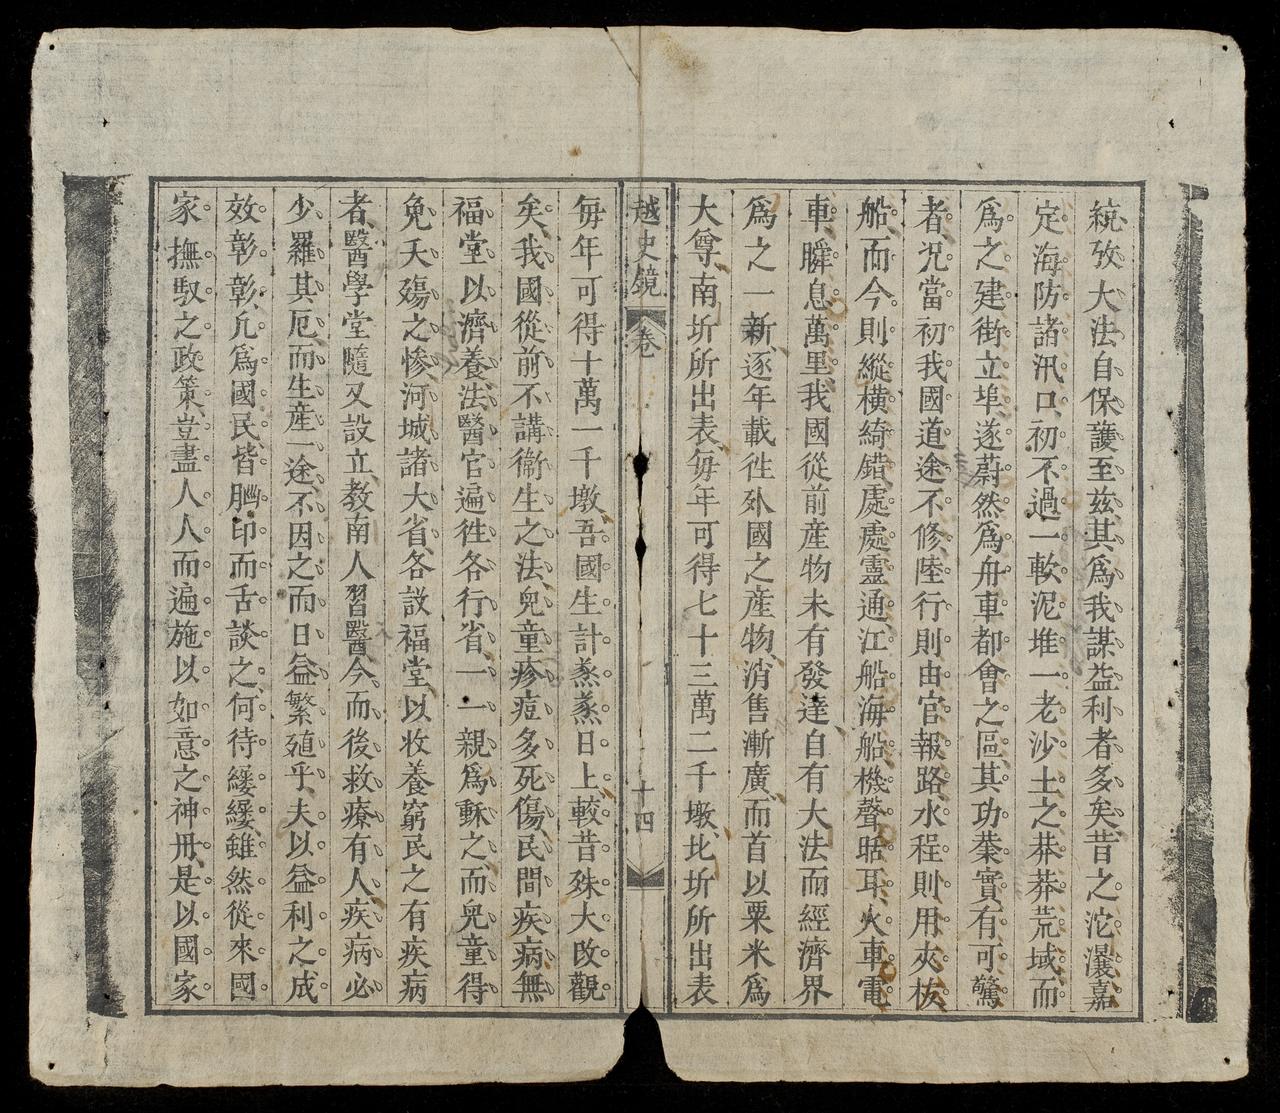 統攷大法自保護至兹其爲我謀益利者多矣昔之沱灢嘉
定海防諸汛口初不過一軟泥堆一老沙土之莽莽荒域而
爲之建街立埠遂蔚然爲舟車都會之區其功業實有可驚
者況當初我國道途不修陸行則由官報路水程則用夾板
船而今則縱橫綺錯處處靈通江船海船機聲聒耳火車電
車瞬息萬里我國從前産物未有發達自有大法而經濟界
爲之一新逐年載徃外國之産物消售漸廣而首以粟米爲
大尊南圻所出表每年可得七十三萬二千墩北圻所出表
越史鏡 卷 十四
每年可得十萬一千墩吾國生計烝烝日上較昔殊大改觀
矣我國從前不講衞生之法兒童疹痘多死傷民間疾病無
福堂以濟養法醫官遍徃各行省一一親爲稣之而兒童得
免夭殤之慘河城諸大省各設福堂以收養窮民之有疾病
者醫學堂隨又設立教南人習醫今而後救療有人疾病必
少羅其厄而生産一途不因之而日益繁殖乎夫以益利之成
效彰彰凢爲國民皆腦印而舌談之何待縷縷雖然從來國
家撫馭之政策豈盡人人而遍施以如意之神冊是以國家